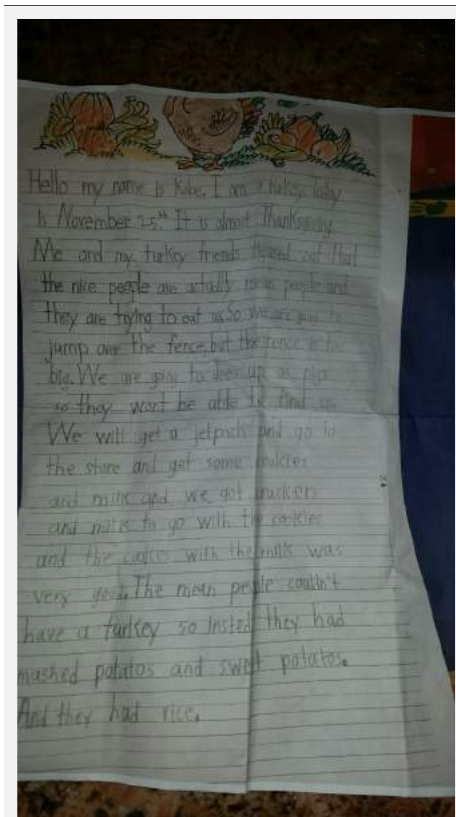 Hello my name is Kobe. I am a turkey. Today
is November 25th. It is almost Thanksgiving
Me and my turkey friends figured out that
the nice people are actually mean people and
they are trying to eat us. So we are going to
jump over the fence, but the fence is too
big. We are going to dress up as pigs
so they wont be able to find us.
We will get a jetpack and go to
the store and get some cookies
and milk and we got crackers
and milk to go with the cookies
and the cookies with the milk was
very good. The mean people couldn't
have a turkey so insted they had
mashed potatos and sweet potatos.
And they had rice.